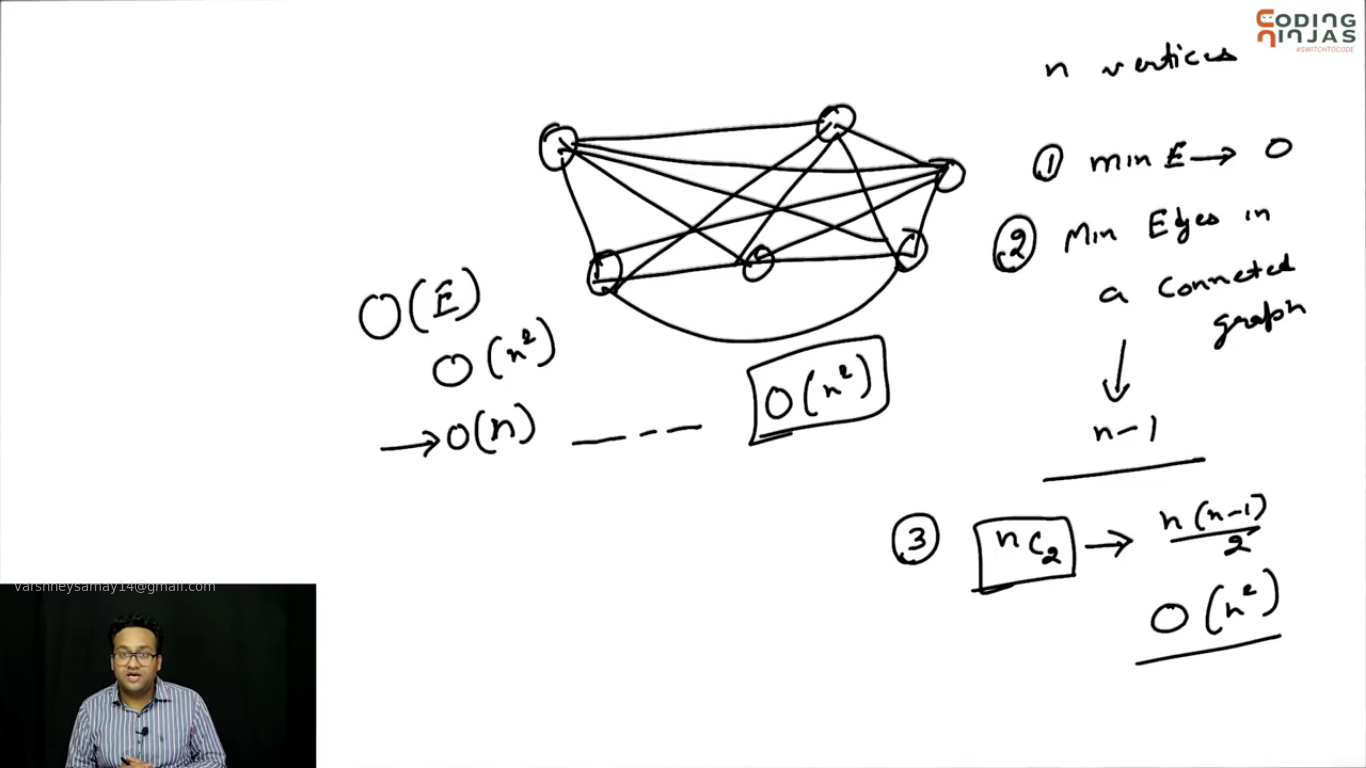 CODING
NINJAS
#SWITCHTOCODE
n vertices
① min E → 0
② Min Edges in
a Conneted
graph
↓
n-1
O(E)
O(n²)
→ O(n) — - — O(n²)
③ nC₂ → n(n-1)/2
O(n²)
varshneysamay14@gmail.com